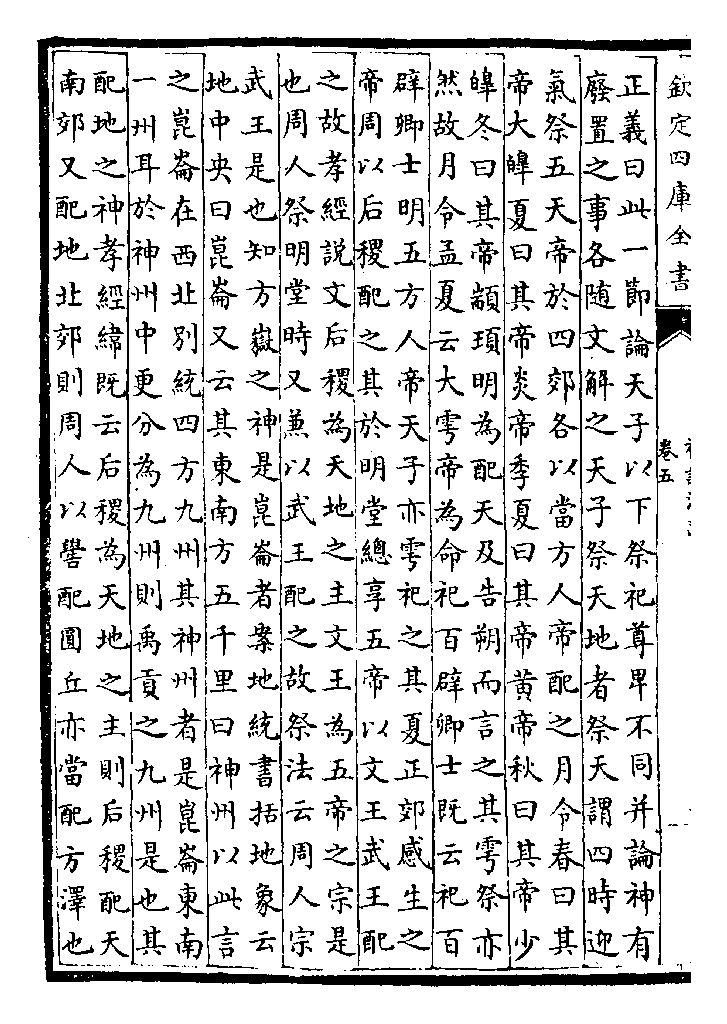 欽定四庫全書
卷五
正義曰此一節論天子以下祭祀尊卑不同并論神有
廢置之事各随文解之天子祭天地者祭天謂四時迎
氣祭五天帝於四郊各以當方人帝配之月令春曰其
帝大皥夏曰其帝炎帝季夏曰其帝黄帝秋曰其帝少
皥冬曰其帝顓頊明為配天及告朔而言之其雩祭亦
然故月令孟夏云大雩帝為命祀百辟卿士既云祀百
辟卿士明五方人帝天子亦雩祀之其夏正郊感生之
帝周以后稷配之其於明堂總享五帝以文王武王配
之故孝經説文后稷為天地之主文王為五帝之宗是
也周人祭明堂時又兼以武王配之故祭法云周人宗
武王是也知方嶽之神是崑崙者案地統書括地象云
地中央曰崑崙又云其東南方五千里曰神州以此言
之崑崙在西北别統四方九州其神州者是崑崙東南
一州耳於神州中更分為九州則禹貢之九州是也其
配地之神孝經緯既云后稷為天地之主則后稷配天
南郊又配地北郊則周人以嚳配圓丘亦當配方澤也